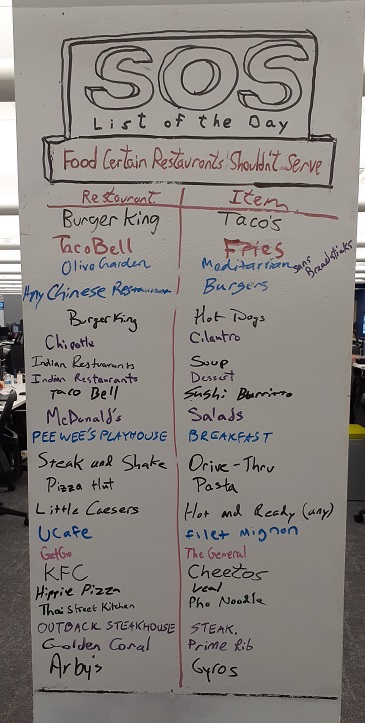 SOS
List of the Day
Food Certain Restaurants Shouldn't Serve
Restaurant Item
Burger King Taco's
Taco Bell Fries
Olive Garden sans Breadsticks
Any Chinese Restaurant Burgers
Burger King Hot Dogs
Chipotle Cilantro
Indian Restaurants Soup
Indian Restaurants Dessert
Taco Bell Sushi Burrito
McDonald's Salads
PEEWEE'S PLAYHOUSE BREAKFAST
Steak and Shake Drive-Thru
Pizza Hut Pasta
Little Caesers Hot and Ready (any)
UCafe filet Mignon
GetGo The General
KFC Cheetos
Hippie Pizza
Thai Street Kitchen Pho Noodle
OUTBACK STEAKHOUSE STEAK.
Golden Coral Prime Rib
Arby's Gyros